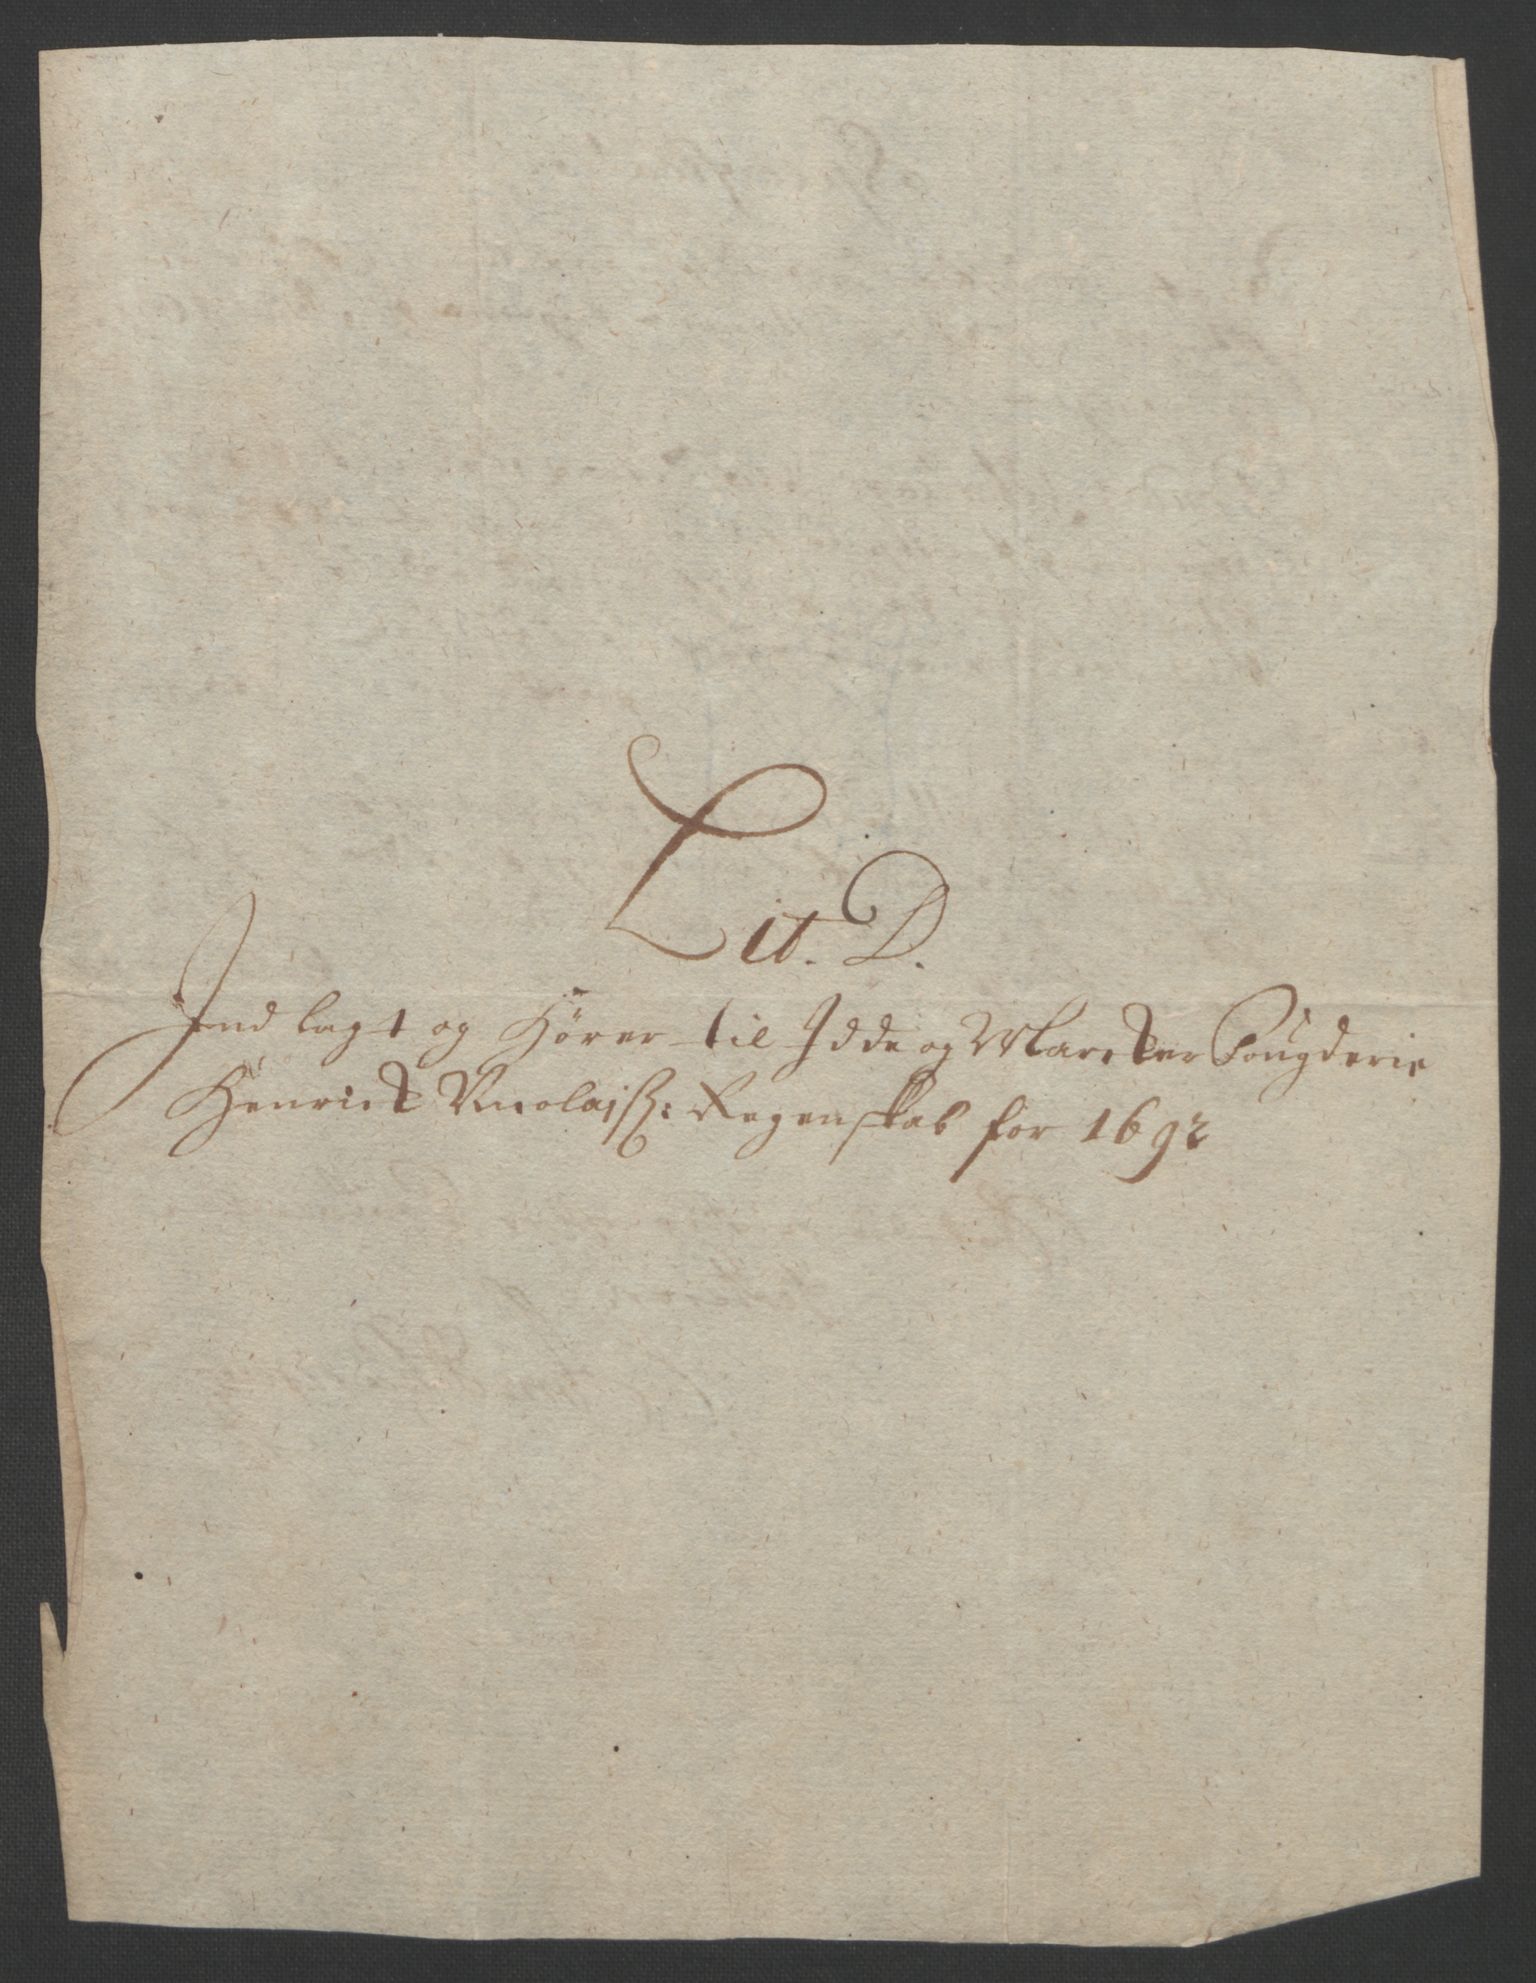 Lit. D.
Indlagt og Hörer til Idde og Marcker Fougderie
Henrick Nicolaiss: Regenskab for 1692